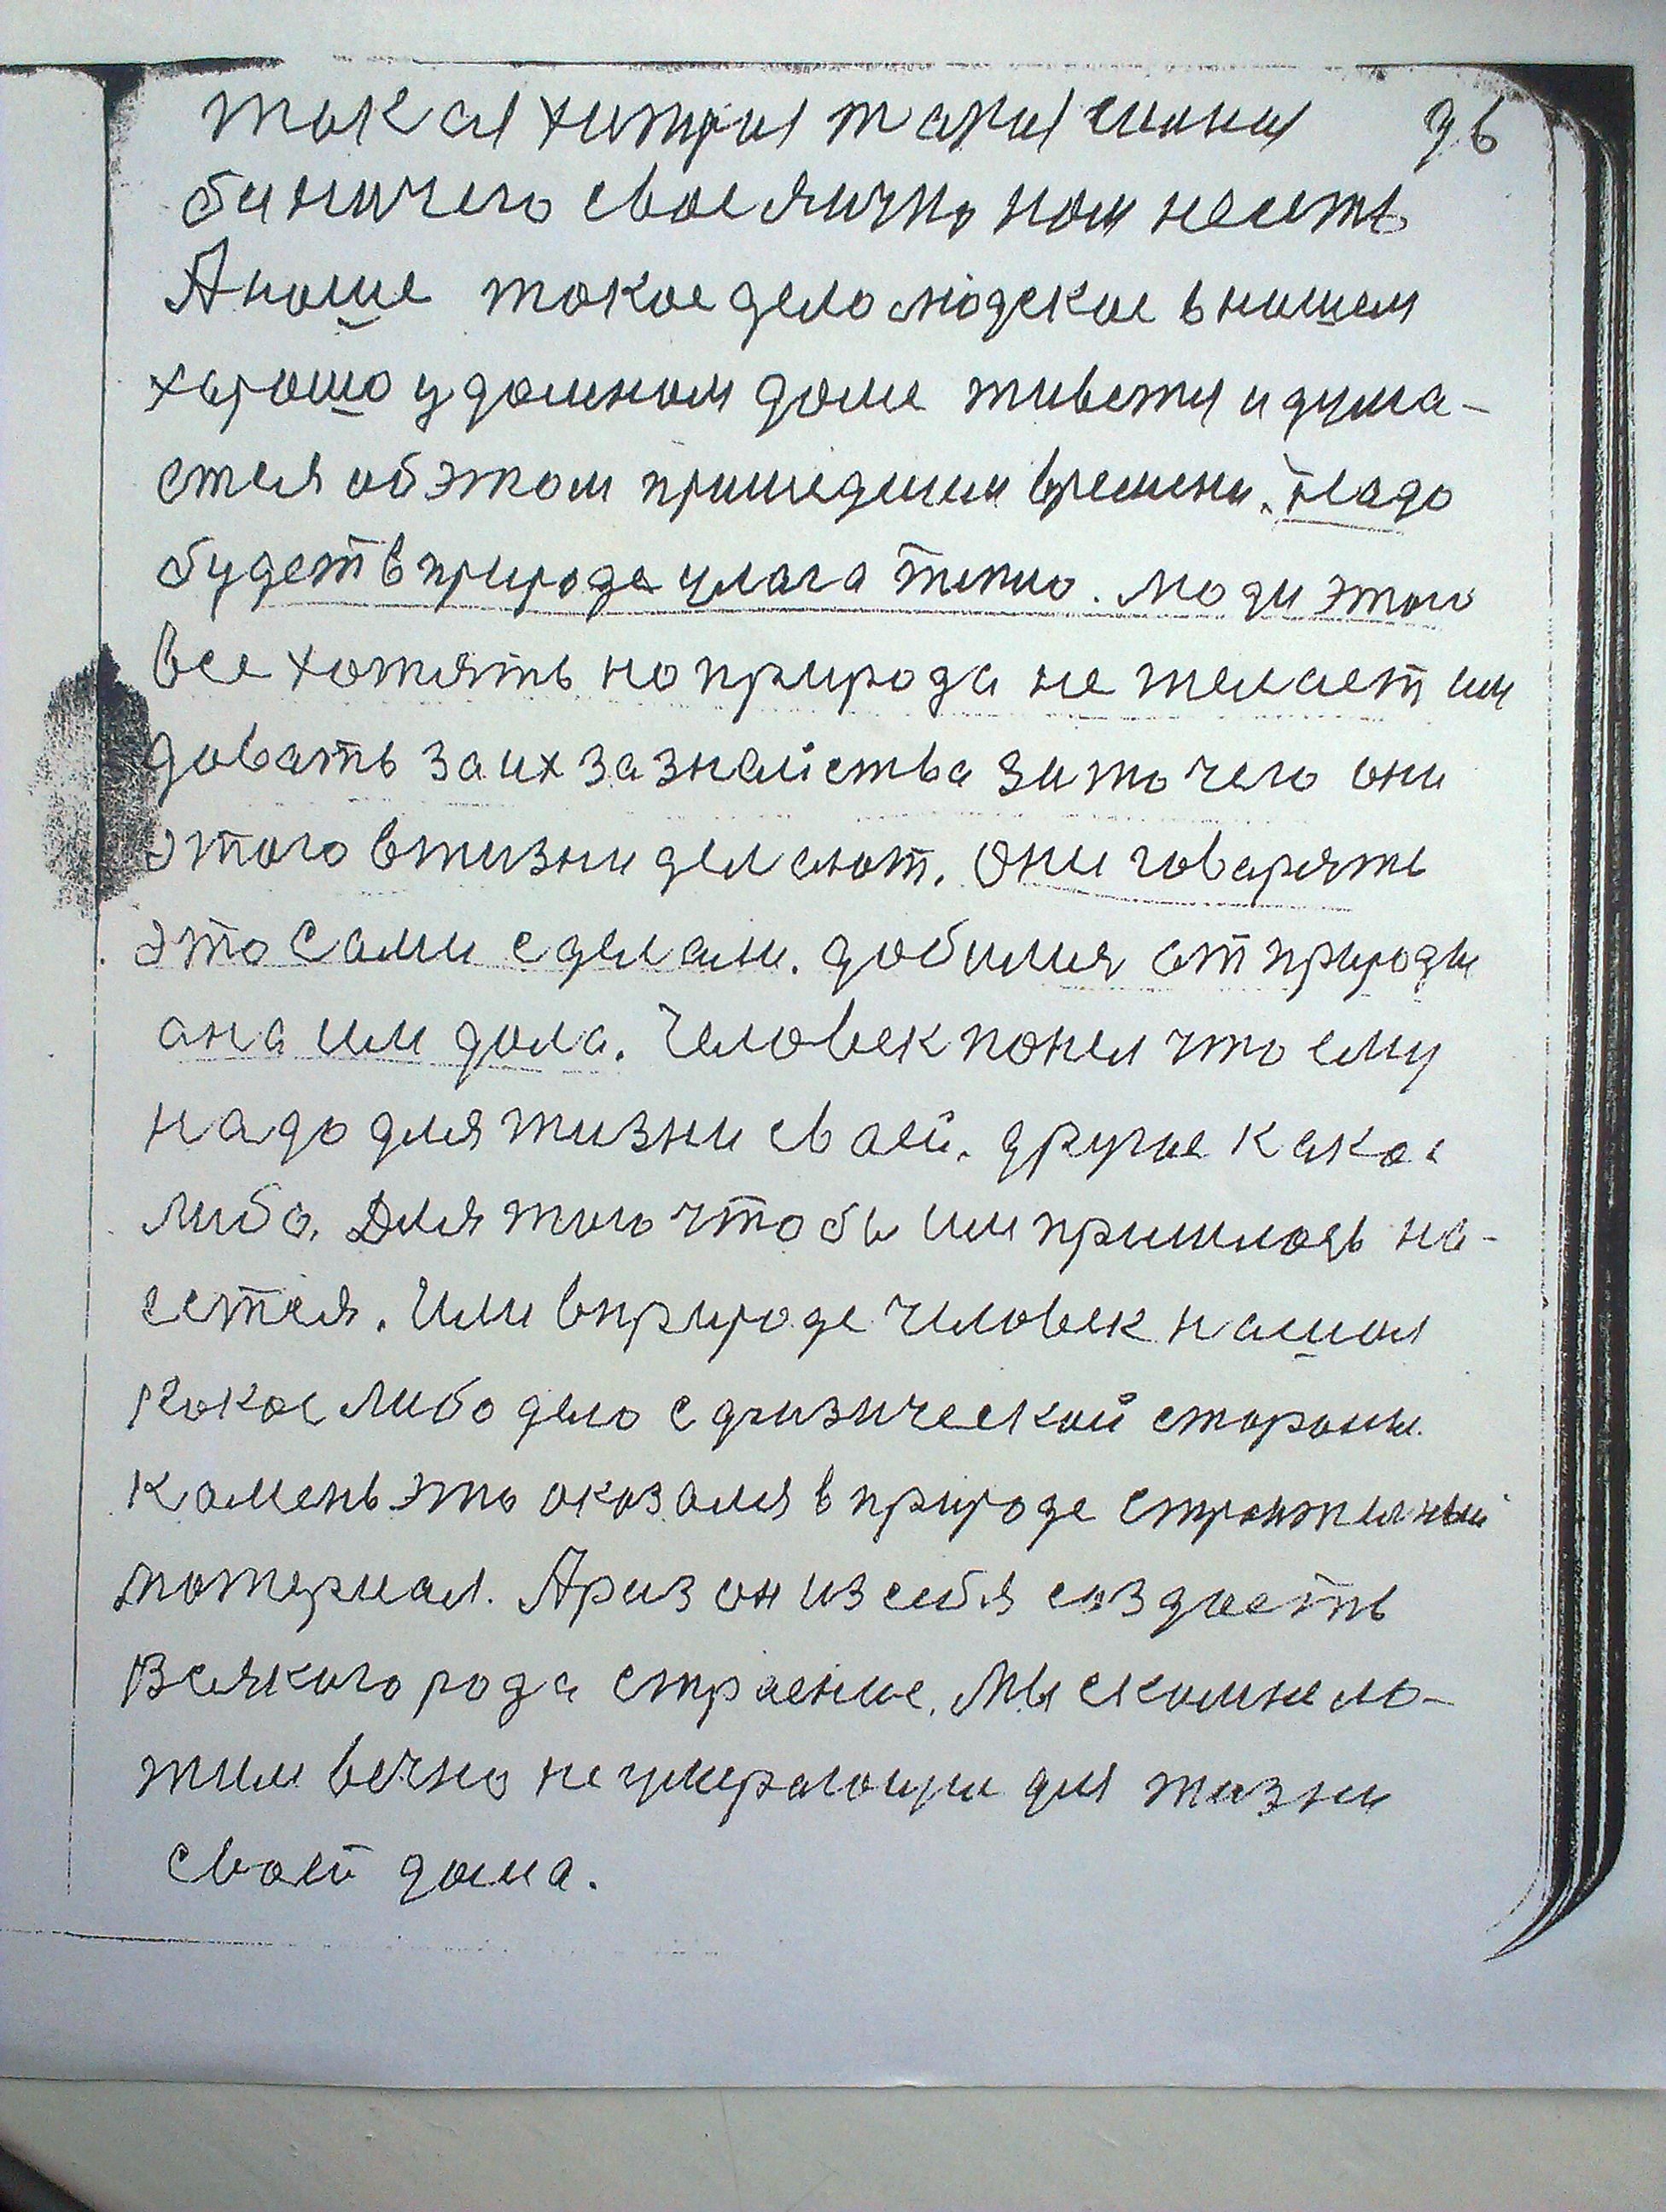 такая хитрая такая 36
бы ничего свое лично нам не есть
А наше такое дело людское в нашем
харошо удомном доме живетя и дума-
ется об этом пришедшем времени. Надо
будеть в природе улага тепло. люди этого
все хотять но природа не желает им
давать за их зазнайства за то чего они
этого в жизни делают. Они говарять
это сами сделали. добилия от природы
ана им дала. Человек понел что ему
надо для жизни сваей. другие какое
либо. Для того что бы им пришлось на-
естея. Или в природе человек нашол
какое либо дело с физической стороны.
камень это оказаля в природе
материал. А раз он из себя создаеть
Всякого рода страение. Мы с комне ло-
жим вечно не умерающи для жизни
сваей дома.